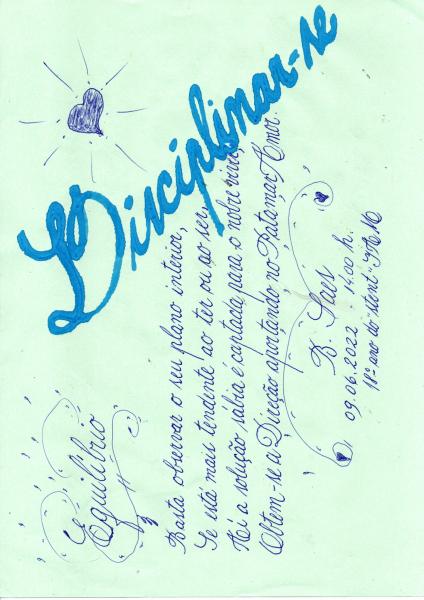 Disciplinar-se
Equilíbrio
Basta observar o seu plano interior,
Se está mais tendente ao ter ou ao ser,
Aí a solução sábia é captada para o nobre viver,
Obtem-se a Direção aportando no Patamar Amor.
B. Saes
09.06.2022 - 14:00 h.
18º ano do stent